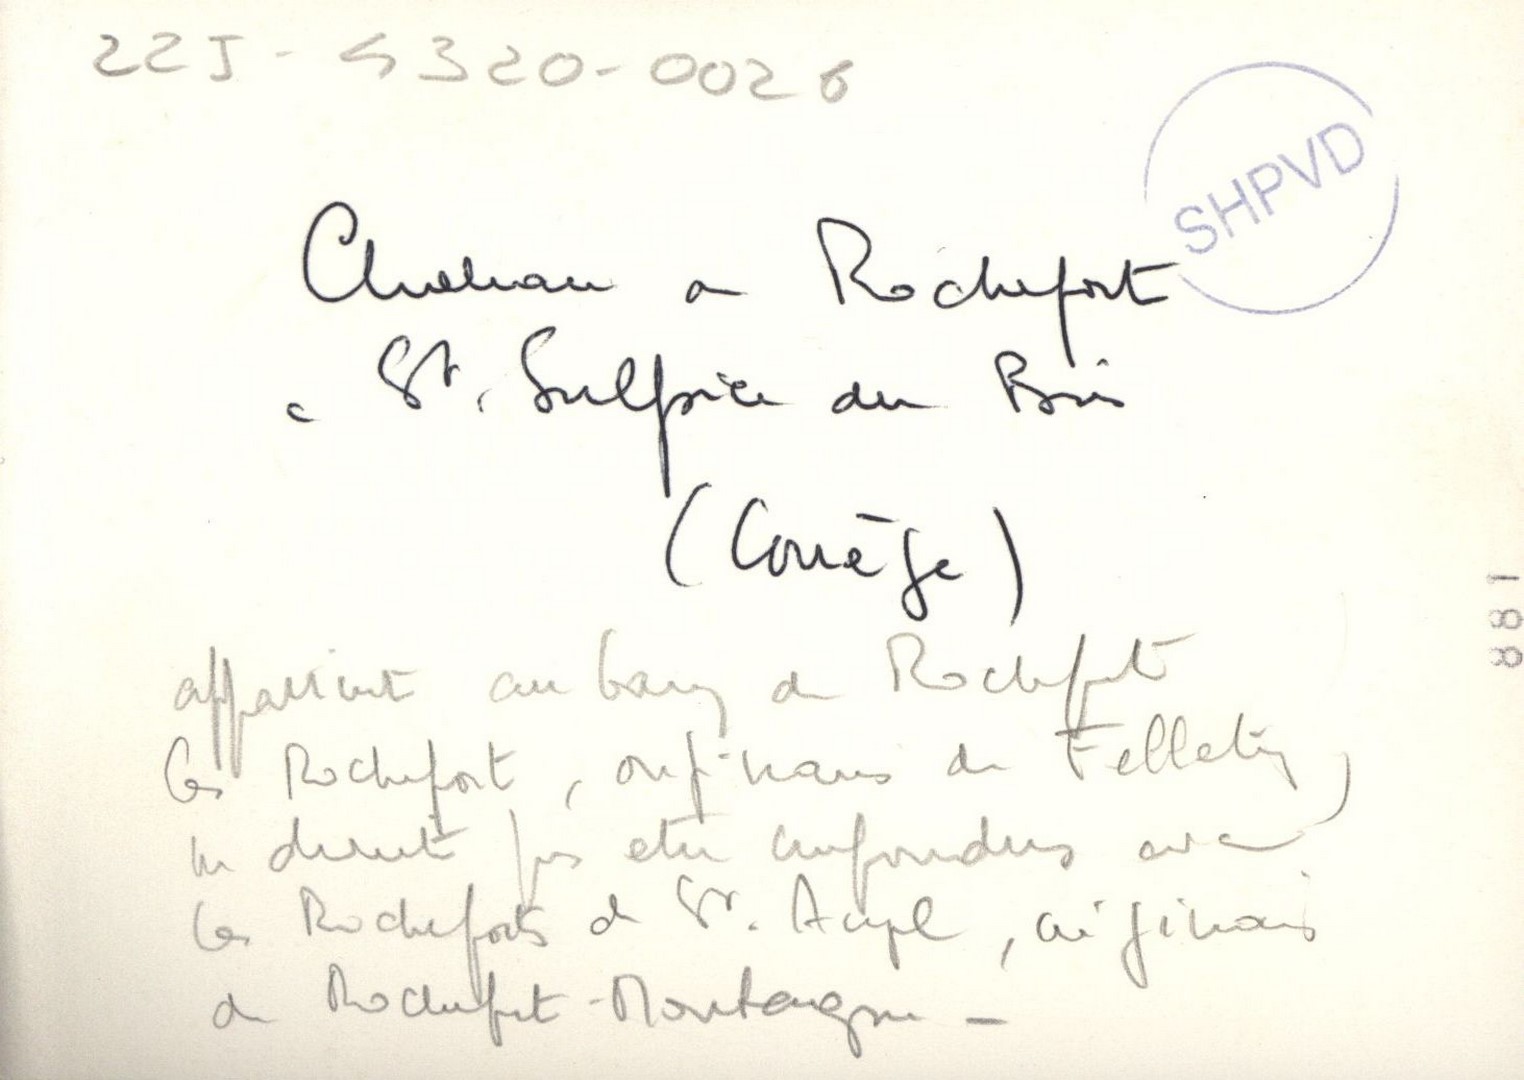 22J-4320-0026
SHPVD
Chateau de Rochefort
à St. Sulpice du Bois
(Corrèze)
appartint au baron de Rochefort
les Rochefort, originaires de Felletin,
ne doivent pas etre confondus avec
les Rocheforts de St. Angel, originaires
de Rochefort-Montaigne -
188